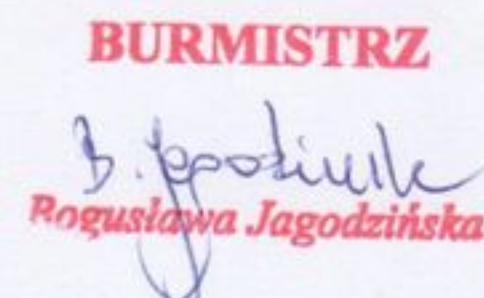 BURMISTRZ
B. Jagodzińska
Bogusława Jagodzińska